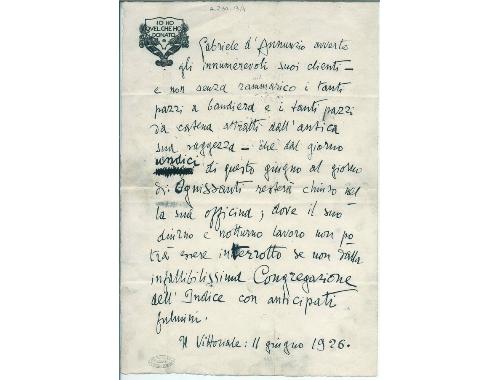 A.230.13/1
IO HO
QVEL CHE HO
DONATO
Gabriele d'Annunzio avverte
gli innumerevoli suoi clienti –
e non senza rammarico i tanti
pazzi a bandiera e i tanti pazzi
da catena attratti dall'antica
sua saggezza – che dal giorno
undici di questo giugno al giorno
di Ognissanti resterà chiuso nel
la sua officina; dove il suo
diurno e notturno lavoro non po
trà essere interrotto se non dalla
infallibilissima Congregazione
dell'Indice con anticipati
fulmini.
Il Vittoriale: 11 giugno 1926.